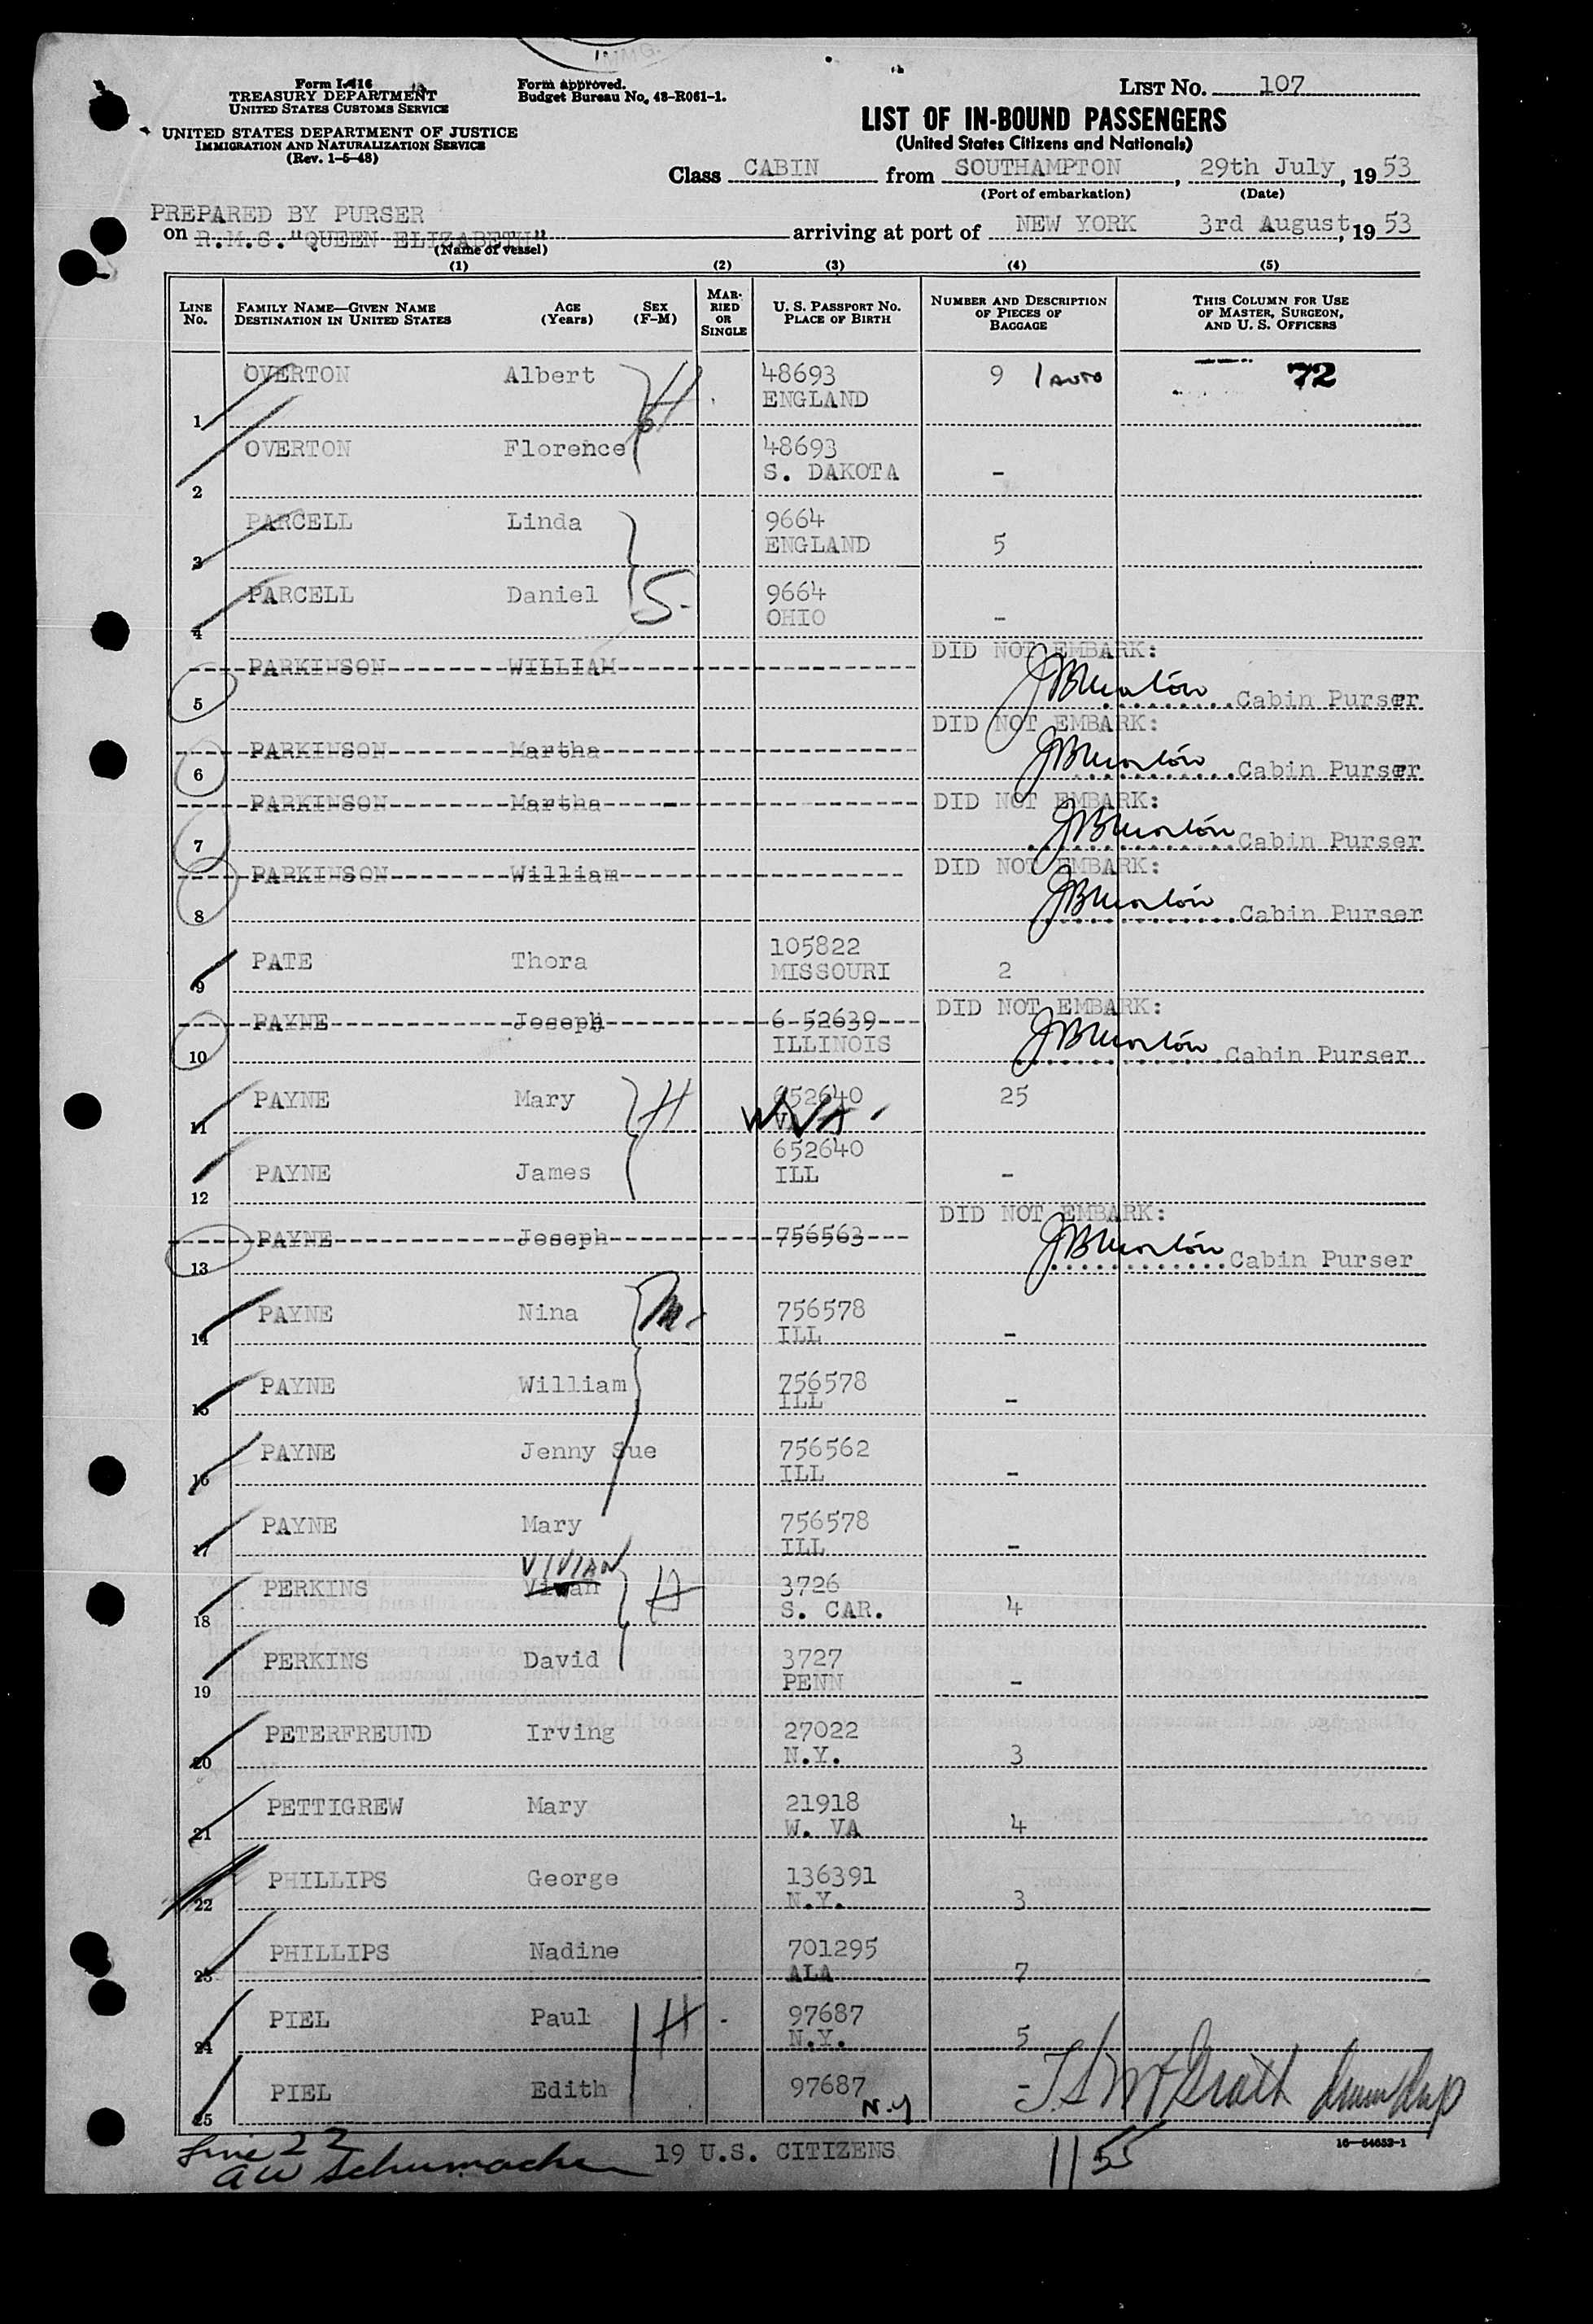 IMMG.
Form I-416
TREASURY DEPARTMENT
UNITED STATES CUSTOMS SERVICE
Form approved.
Budget Bureau No. 43-R061-1.
LIST NO. 107
UNITED STATES DEPARTMENT OF JUSTICE
IMMIGRATION AND NATURALIZATION SERVICE
(Rev. 1-5-48)
LIST OF IN-BOUND PASSENGERS
(United States Citizens and Nationals)
Class CABIN from SOUTHAMPTON, 29th July, 1953
(Port of embarkation) (Date)
PREPARED BY PURSER
on R.M.S."QUEEN ELIZABETH" arriving at port of NEW YORK 3rd August, 1953
(Name of vessel)
(1) (2) (3) (4) (5)
LINE NO. FAMILY NAME—GIVEN NAME DESTINATION IN UNITED STATES AGE (Years) SEX (F-M) MARRIED OR SINGLE U. S. PASSPORT NO. PLACE OF BIRTH NUMBER AND DESCRIPTION OF PIECES OF BAGGAGE THIS COLUMN FOR USE OF MASTER, SURGEON, AND U. S. OFFICERS
1 OVERTON Albert H 48693 ENGLAND 9 1 AUTO 72
2 OVERTON Florence 48693 S. DAKOTA -
3 PARCELL Linda 9664 ENGLAND 5
4 PARCELL Daniel S- 9664 OHIO -
5 PARKINSON WILLIAM DID NOT EMBARK: Cabin Purser
6 PARKINSON Martha DID NOT EMBARK: Cabin Purser
7 PARKINSON Martha DID NOT EMBARK: Cabin Purser
8 PARKINSON William DID NOT EMBARK: Cabin Purser
9 PATE Thora 105822 MISSOURI 2
10 PAYNE Joseph 6-52639 ILLINOIS DID NOT EMBARK: Cabin Purser
11 PAYNE Mary H 652640 W VA 25
12 PAYNE James 652640 ILL -
13 PAYNE Joseph 756563 DID NOT EMBARK: Cabin Purser
14 PAYNE Nina M- 756578 ILL -
15 PAYNE William 756578 ILL -
16 PAYNE Jenny Sue 756562 ILL -
17 PAYNE Mary 756578 ILL -
VIVIAN
18 PERKINS H 3726 S. CAR. 4
19 PERKINS David 3727 PENN -
20 PETERFREUND Irving 27022 N.Y. 3
21 PETTIGREW Mary 21918 W. VA 4
22 PHILLIPS George 136391 N.Y. 3
23 PHILLIPS Nadine 701295 ALA 7
24 PIEL Paul H - 97687 N.Y. 5
25 PIEL Edith 97687 N.Y -
line 22
AW Schumacher
19 U.S. CITIZENS
1155
16—54652-1